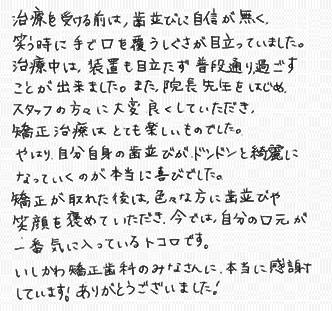 治療を受ける前は、歯並びに自信が無く、
笑う時に手で口を覆うしぐさが目立っていました。
治療中は、装置も目立たず普段通り過ごす
ことが出来ました。また、院長先生をはじめ、
スタッフの方々に大変良くしていただき、
矯正治療はとても楽しいものでした。
やはり、自分自身の歯並びが、ドンドンと綺麗に
なっていくのが本当に喜びでした。
矯正が取れた後は、色々な方に歯並びや
笑顔を褒めていただき、今では、自分の口元が
一番気に入っているトコロです。
いしかわ矯正歯科のみなさんに、本当に感謝
しています!ありがとうございました!